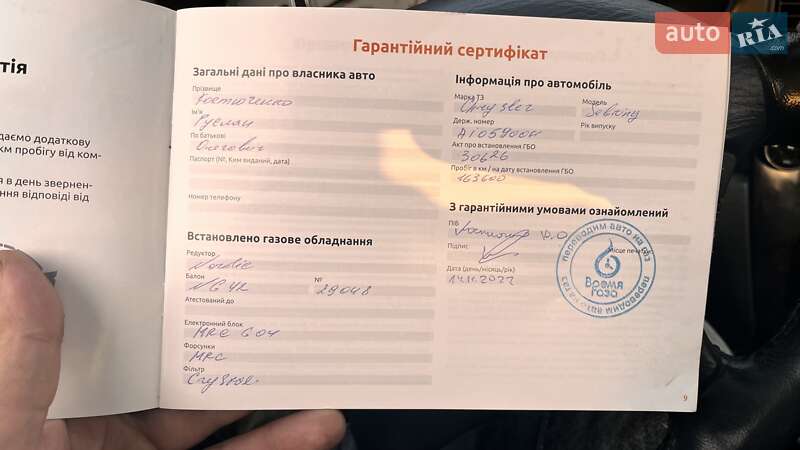 auto RIA .com
тія
даємо додаткову
км пробігу від ком-
я в день звернен-
ння відповіді від
Гарантійний сертифікат
Загальні дані про власника авто
Прізвище
Костюченко
Ім'я
Руслан
По батькові
Олегович
Паспорт (№, Ким виданий, дата)
Номер телефону
Встановлено газове обладнання
Редуктор
Nordic
Балон
№
29048
Атестований до
Електронний блок
Форсунки
Фільтр
Інформація про автомобіль
Марка ТЗ
Модель
Chrysler
Sebring
Держ. номер
Рік випуску
Акт про встановлення ГБО
30626
Пробіг в км / на дату встановлення ГБО
163600
З гарантійними умовами ознайомлений
ПІБ
Підпис
Місце печатки
Дата (день/місяць/рік)
переводим авто на газ
Время газа
переводим авто на газ
9